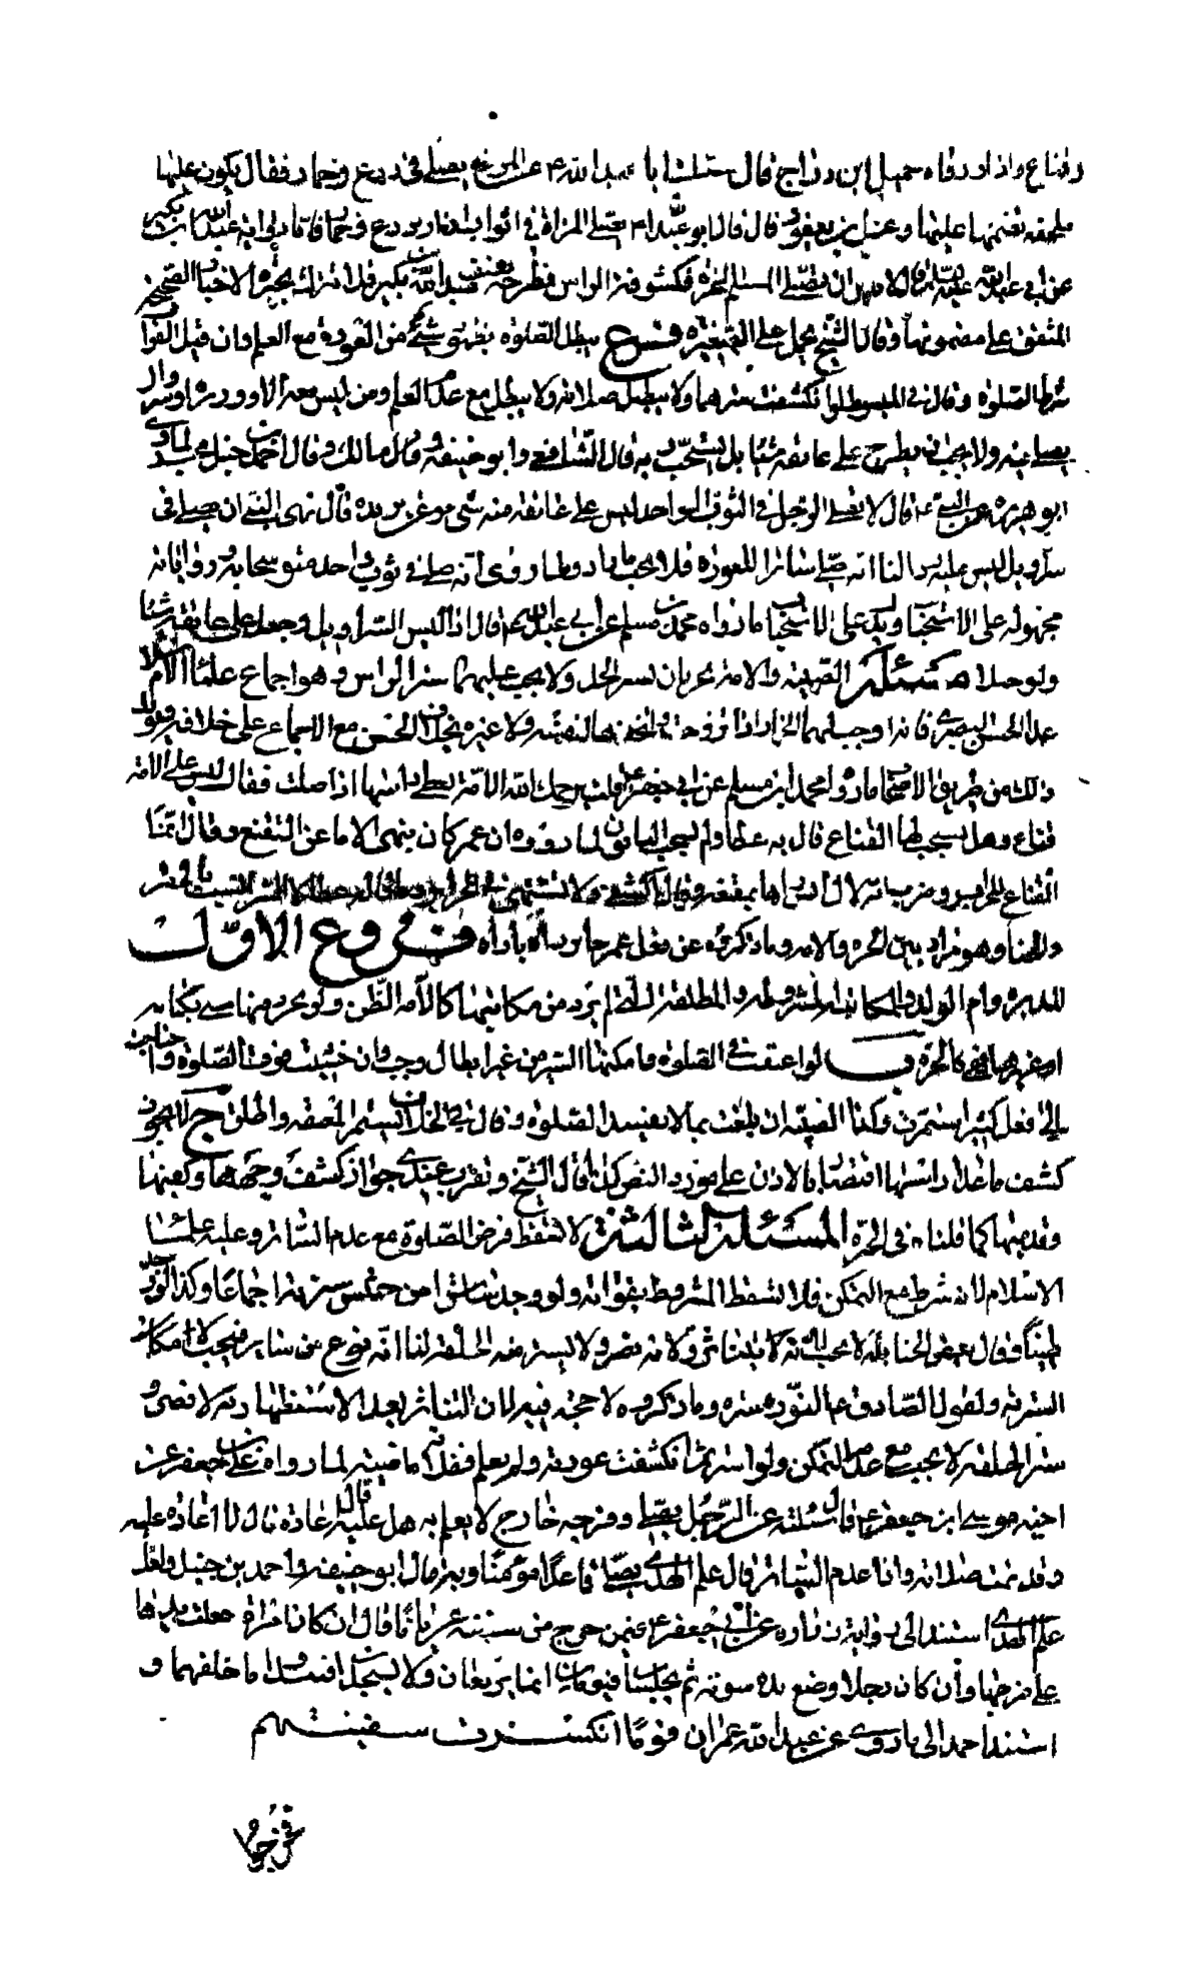 وقناع واذا ورواه جميل ابن دراج قال سئلت ابا عبد الله ع عن المرئة تصلي في درع وخمار فقال يكون عليها
ملحفة تضمها عليها وعن ابن ابي يعفور قال قال ابو عبد الله ع تصلي المراة في ثلثة اثواب ازار ودرع وخمار فاما رواية عبد الله بن بكير
عن ابي عبد الله عليه السلام قال لا باس ان تصلي المسلمة الحرة مكشوفة الراس مطرحة لضعف عبد الله بن بكير فلا تترك بخبره الاخبار الصحيحة
المتفق على مضمونها وقال الشيخ يحمل على الصغيرة فرع يبطل الصلوة بظهور شئ من العورة مع العلم وان قيل لفوات
شرط الصلوة وقال في المبسوط لو انكشفت سترهما ولا يبطل صلاته ولا يبطل مع عدم العلم ومن ليس معه الا وزرة او سروال
يصلي فيه ولا يجب ان يطرح على عاتقه شيئا بل يستحب وبه قال الشافعي وابو حنيفة وقال مالك وقال احمد بن حنبل يجب لما روى
ابو هريرة عن النبي ص قال لا يصلي الرجل في الثوب الواحد ليس على عاتقه منه شئ وعن بريدة قال نهى النبي ان يصلى في
سراويل ليس عليه رداء لنا انه صلى ساترا للعورة فلا يجب ما زاد ولما روي انه صلى في ثوب واحد متوشحا به ورواياته
محمولة على الاستحباب ويدل على الاستحباب ما رواه محمد بن مسلم عن ابي عبد الله ع قال اذا لبس السراويل وجعل على عاتقه شيئا
ولو حبلا مسئلة الصبية والامة تجزيان بستر الجسد ولا يجب عليهما ستر الراس وهو اجماع علماء الاسلام
عدا الحسن البصري فانه اوجب لها الخمار اذا تزوجت او اتخذها لنفسه ولا عبرة بخلاف الحسن مع الاجماع على خلافه ويؤيد
ذلك من طريق الاصحاب ما رواه محمد ابن مسلم عن ابي جعفر ع قلت يرحمك الله الامة تغطي راسها اذا صلت فقال ليس على الامة
قناع وهل يستحب لها القناع قال به عطا ولم يستحبه الباقون لما رووه ان عمر كان ينهى الاماء عن التقنع وقال انما
القناع للحراير وضرب امة لال انس راها بمقنعة وقال اكشفي ولا تشبهي بالحراير
لنا وهو فرق بين الحرة والامة وما ذكروه عن فعل عمر جاز ان يكون رأيا راه فروع الاول
المدبرة وام الولد والمكاتبة المشروطة والمطلقة التي لم تؤد من مكاتبتها كالامة القن ولو تحرر منها شئ بكتابة
او غيرها فهي كالحرة ب لو اعتقت في الصلوة وامكنها الستر من غير ابطال وجب وان خشيت فوت الصلوة واحتاجت
الى فعل كثير استمرت وكذا الصبية ان بلغت بما لا يفسد الصلوة وقال في الخلاف يستمر المعتقة واطلق ج لا يجوز
كشف ما عدا راسها اقتصارا بالاذن على مورد النص كذا قال الشيخ ويقرب عندي جواز كشف وجهها وكفيها
وقدميها كما قلناه في الحرة المسئلة الثالثة لا تسقط فرض الصلوة مع عدم الساتر وعليه علماء
الاسلام لانه شرط مع التمكن فلا تسقط المشروط بفواته ولو وجد ساترا من حشيش ستر به اجماعا وكذا لو وجد
طينا وقال بعض الحنابلة لا يجب لانه لا يتناثر ولانه يضر ولا يستر منه الخلقة لنا انه نوع من ساتر فيجب لامكان
الستر به ولقول الصادق ع النورة سترة وما ذكروه لا حجة فيه لان التناثر يعيد الاستظهار به ولا نص
ستر الخلقة لا يجب مع عدم التمكن ولو استتر ثم انكشفت عورته ولم يعلم فقد تم ما ضيه لما رواه علي بن جعفر عن
اخيه موسى ابن جعفر ع قال سئلته عن الرجل يصلي وفرجه خارج لا يعلم به هل عليه اعادة قال لا اعادة عليه
وقد تمت صلاته واذا عدم الساتر قال علم الهدى يصلي قاعدا موميا وبه قال ابو حنيفة واحمد بن حنبل ولعل
علم الهدى استند الى رواية زرارة عن ابي جعفر ع فيمن خرج من سفينة عريانا قال ان كان امراة جعلت يديها
على فرجها وان كان رجلا وضع يده سوته ثم يجلسان فيوميان ايماء ولا يركعان ولا يسجدان فيبدوا ما خلفهما و
استند احمد الى ما روى عن عبد الله عمر ان قوما انكسرت سفينتهم